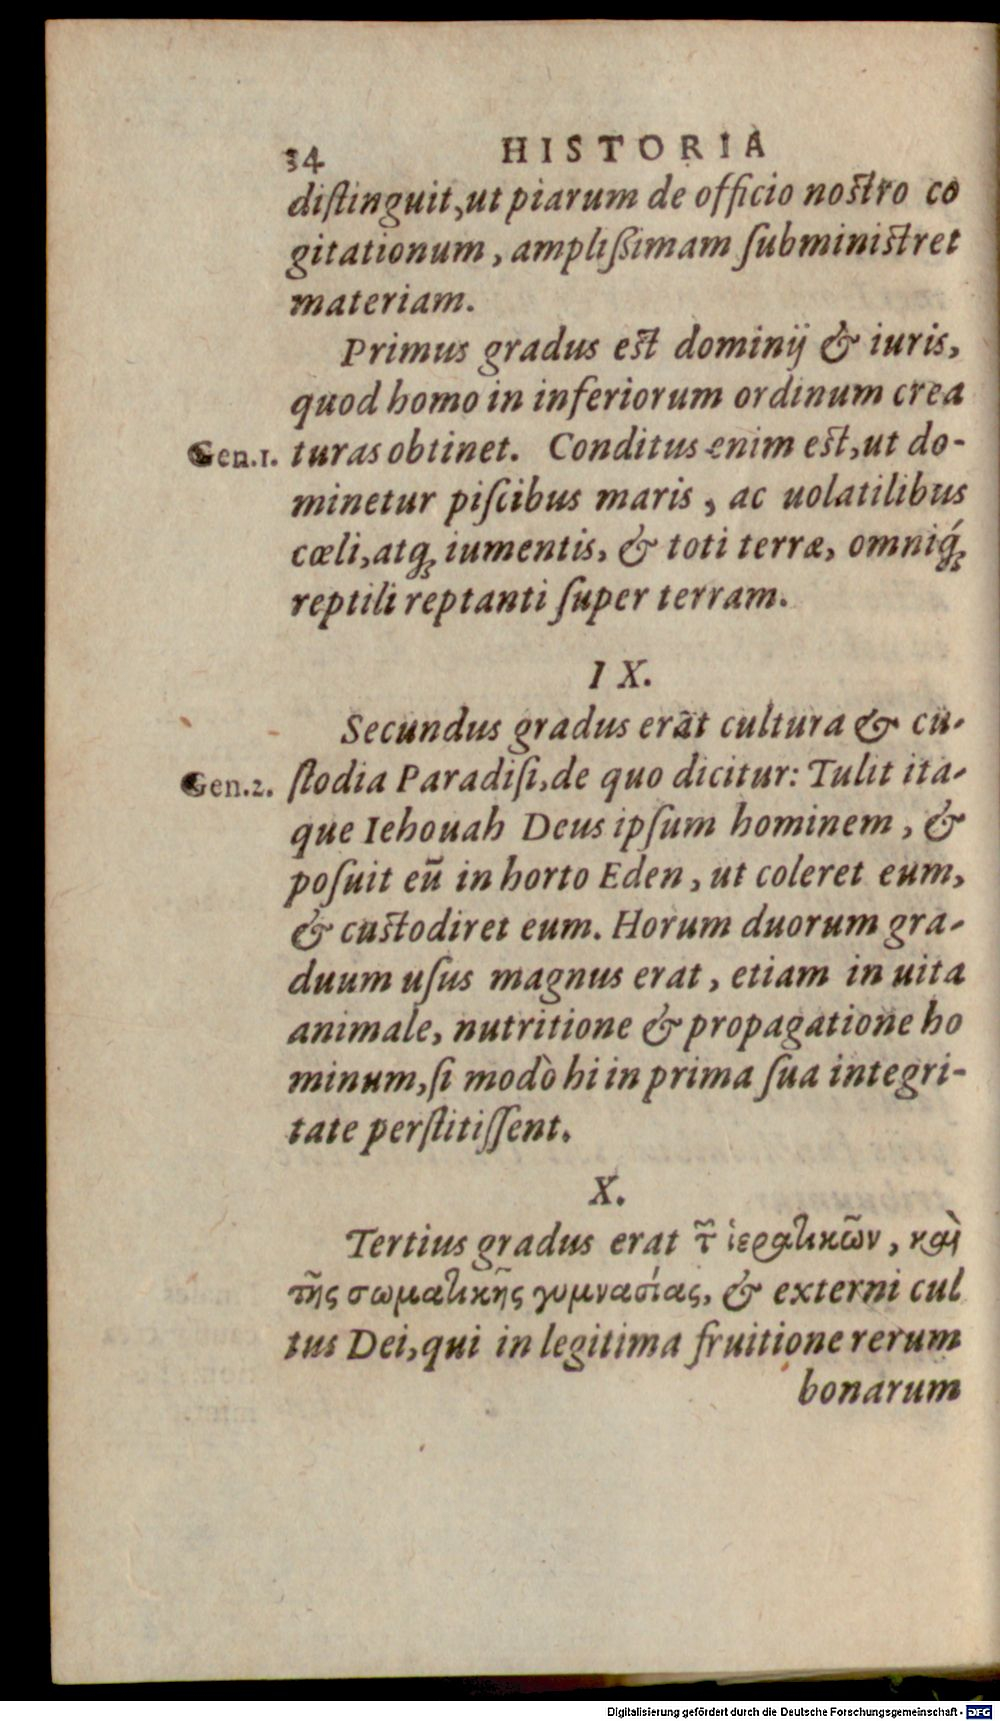 34 HISTORIA
diſtinguit, ut piarum de officio noſtro co
gitationum, ampliſsimam ſubminiſtret
materiam.
Primus gradus eſt dominij & iuris,
quod homo in inferiorum ordinum crea
Gen.1. turas obtinet. Conditus enim eſt, ut do-
minetur piſcibus maris, ac uolatilibus
cœli, atq; iumentis, & toti terræ, omniq́;
reptili reptanti ſuper terram.
IX.
Secundus gradus erat cultura & cu-
Gen.2. ſtodia Paradiſi, de quo dicitur: Tulit ita-
que Iehouah Deus ipſum hominem, &
poſuit eū in horto Eden, ut coleret eum,
& cuſtodiret eum. Horum duorum gra-
duum uſus magnus erat, etiam in uita
animale, nutritione & propagatione ho
minum, ſi modò hi in prima ſua integri-
tate perſtitiſſent.
X.
Tertius gradus erat τ῀ ἱερατικῶν, καὶ
τῆς σωματικῆς γυμνασίας, & externi cul
tus Dei, qui in legitima fruitione rerum
bonarum
Digitalisierung gefördert durch die Deutsche Forschungsgemeinschaft - DFG